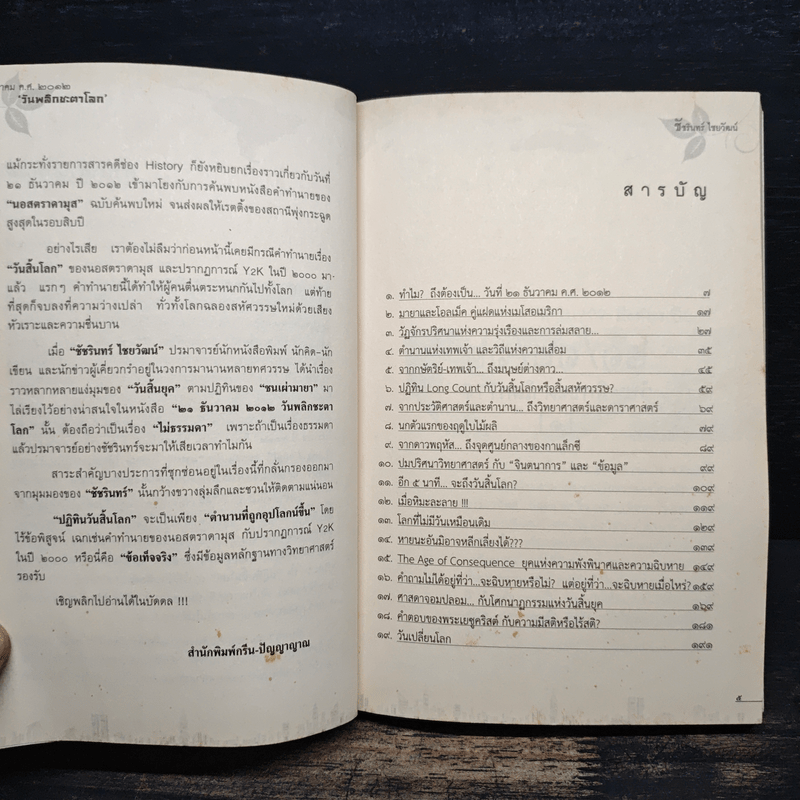 าคม ค.ศ. ๒๐๑๒
'วันพลิกชะตาโลก'
แม้กระทั่งรายการสารคดีช่อง History ก็ยังหยิบยกเรื่องราวเกี่ยวกับวันที่
๒๑ ธันวาคม ปี ๒๐๑๒ เข้ามาโยงกับการค้นพบหนังสือคำทำนายของ
“นอสตราดามุส” ฉบับค้นพบใหม่ จนส่งผลให้เรตติ้งของสถานีพุ่งกระฉูด
สูงสุดในรอบสิบปี
อย่างไรเสีย เราต้องไม่ลืมว่าก่อนหน้านี้เคยมีกรณีคำทำนายเรื่อง
“วันสิ้นโลก” ของนอสตราดามุส และปรากฏการณ์ Y2K ในปี ๒๐๐๐ มา-
แล้ว แรกๆ คำทำนายนี้ได้ทำให้ผู้คนตื่นตระหนกกันไปทั้งโลก แต่ท้าย
ที่สุดก็จบลงที่ความว่างเปล่า ทั่วทั้งโลกฉลองสหัศวรรษใหม่ด้วยเสียง
หัวเราะและความชื่นบาน
เมื่อ “ชัชรินทร์ ไชยวัฒน์” ปรมาจารย์นักหนังสือพิมพ์ นักคิด-นัก
เขียน และนักข่าวผู้เคี่ยวกรำอยู่ในวงการมานานหลายทศวรรษ ได้นำเรื่อง
ราวหลากหลายแง่มุมของ “วันสิ้นยุค” ตามปฏิทินของ “ชนเผ่ามายา” มา
ไล่เรียงไว้อย่างน่าสนใจในหนังสือ “๒๑ ธันวาคม ๒๐๑๒ วันพลิกชะตา
โลก” นั้น ต้องถือว่าเป็นเรื่อง “ไม่ธรรมดา” เพราะถ้าเป็นเรื่องธรรมดา
แล้วปรมาจารย์อย่างชัชรินทร์จะมาให้เสียเวลาทำไมกัน
สาระสำคัญบางประการที่ซุกซ่อนอยู่ในเรื่องนี้ที่กลั่นกรองออกมา
จากมุมมองของ “ชัชรินทร์” นั้นกว้างขวางลุ่มลึกและชวนให้ติดตามแน่นอน
“ปฏิทินวันสิ้นโลก” จะเป็นเพียง “ตำนานที่ถูกอุปโลกน์ขึ้น” โดย
ไร้ข้อพิสูจน์ เฉกเช่นคำทำนายของนอสตราดามุส กับปรากฏการณ์ Y2K
ในปี ๒๐๐๐ หรือนี่คือ “ข้อเท็จจริง” ซึ่งมีข้อมูลหลักฐานทางวิทยาศาสตร์
รองรับ
เชิญพลิกไปอ่านได้ในบัดดล !!!
สำนักพิมพ์กรีน-ปัญญาญาณ
ชัชรินทร์ ไชยวัฒน์
สารบัญ
๑. ทำไม? ถึงต้องเป็น... วันที่ ๒๑ ธันวาคม ค.ศ. ๒๐๑๒ ๗
๒. มายาและโอลเม็ค คู่แฝดแห่งเมโสอเมริกา ๑๗
๓. วัฏจักรปริศนาแห่งความรุ่งเรืองและการล่มสลาย... ๒๗
๔. ตำนานแห่งเทพเจ้า และวิถีแห่งความเสื่อม ๓๕
๕. จากกษัตริย์-เทพเจ้า... ถึงมนุษย์ต่างดาว... ๔๕
๖. ปฏิทิน Long Count กับวันสิ้นโลกหรือสิ้นสหัศวรรษ? ๕๙
๗. จากประวัติศาสตร์และตำนาน... ถึงวิทยาศาสตร์และดาราศาสตร์ ๖๙
๘. นกตัวแรกของฤดูใบไม้ผลิ ๗๙
๙. จากดาวพฤหัส... ถึงจุดศูนย์กลางของกาแล็กซี ๘๙
๑๐. ปมปริศนาวิทยาศาสตร์ กับ “จินตนาการ” และ “ข้อมูล” ๙๙
๑๑. อีก ๕ นาที... จะถึงวันสิ้นโลก? ๑๐๙
๑๒. เมื่อหิมะละลาย !!! ๑๑๙
๑๓. โลกที่ไม่มีวันเหมือนเดิม ๑๒๙
๑๔. หายนะอันมิอาจหลีกเลี่ยงได้??? ๑๓๙
๑๕. The Age of Consequence ยุคแห่งความพังพินาศและความฉิบหาย ๑๔๙
๑๖. คำถามไม่ได้อยู่ที่ว่า...จะฉิบหายหรือไม่? แต่อยู่ที่ว่า...จะฉิบหายเมื่อไหร่? ๑๕๙
๑๗. ศาสดาจอมปลอม... กับโศกนาฏกรรมแห่งวันสิ้นยุค ๑๖๙
๑๘. คำตอบของพระเยซูคริสต์ กับความมีสติหรือไร้สติ? ๑๘๑
๑๙. วันเปลี่ยนโลก ๑๙๑
๕